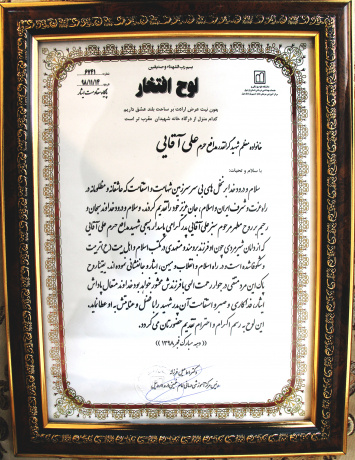 بسم رب الشهداء و صدیقین
۶۲۴۱
۹۸/۱۱/۱۴
لوح افتخار
بدون نیت عرض ارادت بر ساحت بلند عشق داریم
کدام منزل از درگاه خانه شهیدان مقرب تر است
خانواده معظم شهید گرانقدر مدافع حرم علی آقایی
با سلام و تحیات؛
سلام و درود خدا بر نخل های بی سر سرزمین شهامت و استقامت که عاشقانه و مظلومانه و در
راه عزت و شرف ایران و اسلام، جان عزیز خود را تقدیم کردند. و سلام و درود خداوند سبحان و
رحیم بر روح مطهر مرحوم صفر علی آقایی پدر گرامی پاسدار رشید شهید مدافع حرم علی آقایی
که از دامان چنین مردی چون او فرزند برومند و متعهدی در مکتب اسلام و اهل بیت (ع) تربیت
و شکوفا شده است و در راه اسلام و انقلاب و میهن، ایثار و جانفشانی نموده اند. بی تردید روح
پاک این مرد متقی در جوار رحمت الهی با فرزندش محشور خواهد بود خداوند متعال پاداش
ایثار، فداکاری و صبر و استقامت آن پدر شهید را با فضل و عنایتش به او عطا نماید.
این لوح به رسم اکرام و احترام تقدیم حضورتان می گردد.
((دهه مبارک فجر ۱۳۹۸))